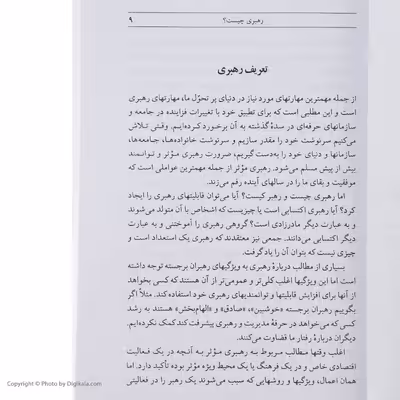 رهبری چیست؟ ۹
تعریف رهبری
از جمله مهمترین مهارتهای مورد نیاز در دنیای پر تحوّل ما، مهارتهای رهبری
است و این مطلبی است که برای تطبیق خود با تغییرات فزاینده در جامعه و
سازمانهای حرفه‌ای در سدهٔ گذشته به آن برخورد کرده‌ایم. وقتی تلاش
می‌کنیم سرنوشت خود را مقدر سازیم و سرنوشت خانواده‌ها، جامعه‌ها،
سازمانها و دنیای خود را به‌دست گیریم، ضرورت رهبری مؤثر و توانمند
بیش از پیش مسلم می‌شود. رهبری مؤثر از جمله مهمترین عواملی است که
موفقیت و بقای ما را در سالهای آینده رقم می‌زند.
اما رهبری چیست و رهبر کیست؟ آیا می‌توان قابلیتهای رهبری را ایجاد
کرد؟ آیا رهبری اکتسابی است یا چیزیست که اشخاص با آن متولد می‌شوند
و به عبارت دیگر مادرزادی است؟ گروهی رهبری را آموختنی و به عبارت
دیگر اکتسابی می‌دانند. جمعی نیز معتقدند که رهبری یک استعداد است و
چیزی نیست که بتوان آن را یاد گرفت.
بسیاری از مطالب دربارهٔ رهبری به ویژگیهای رهبران برجسته توجه داشته
است اما این ویژگیها اغلب کلی‌تر و عمومی‌تر از آن هستند که کسی بخواهد
از آنها برای افزایش قابلیتها و توانمندیهای رهبری خود استفاده کند. مثلاً اگر
بگوییم رهبران برجسته «خوشبین»، «صادق» و «الهام‌بخش» هستند به رشد
کسی که می‌خواهد در حرفهٔ مدیریت و رهبری پیشرفت کند کمک نکرده‌ایم.
دیگران دربارهٔ رفتار ما قضاوت می‌کنند.
اغلب وقتها مطالب مربوط به رهبری مؤثر به آنچه در یک فعالیت
اقتصادی خاص و در یک فرهنگ یا یک محیط ویژه مؤثر بوده تأکید دارد. اما
همان اعمال، ویژگیها و روشهایی که سبب می‌شوند یک رهبر را در فعالیتی
Copyright © Photo by Digikala.com